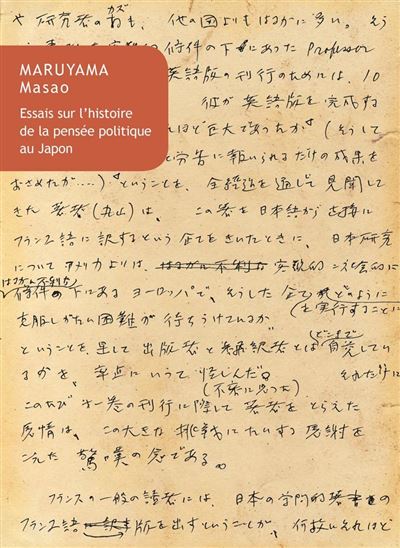 や研究者のカズも、他の国よりもはるかに多い。そう
条件の下にあった Professor
MARUYAMA
Masao
Essais sur l'histoire
de la pensée politique
au Japon
英語版の刊行のためには、10
彼が英語版を完成する
ほど巨大であったか(そうして
労苦に報いられるだけの成果を
おさめたか……)ということを、全経過を通じて見聞して
きた著者(丸山)は、この書を日本語から直接に
フランス語に訳するという企てをきいたときに、日本研究
についてアメリカよりは、はるかに不利な
はるかに不利な
条件の下にあるヨーロッパで、そうした企て どのように
を実行することに
克服しがたい困難が待ちうけているか
ということを、果して出版者と翻訳者とは どこまで 自覚してい
るかを、率直にいって怪しんだ。それだけに
このたび第一巻の刊行に際して著者をとらえた
感情は、この大きな挑戦にたいする感謝を
こえた驚嘆の念である。
フランスの一般の読者には、日本の学問的著書の
フランス語 版を出すということが、何故 それほど